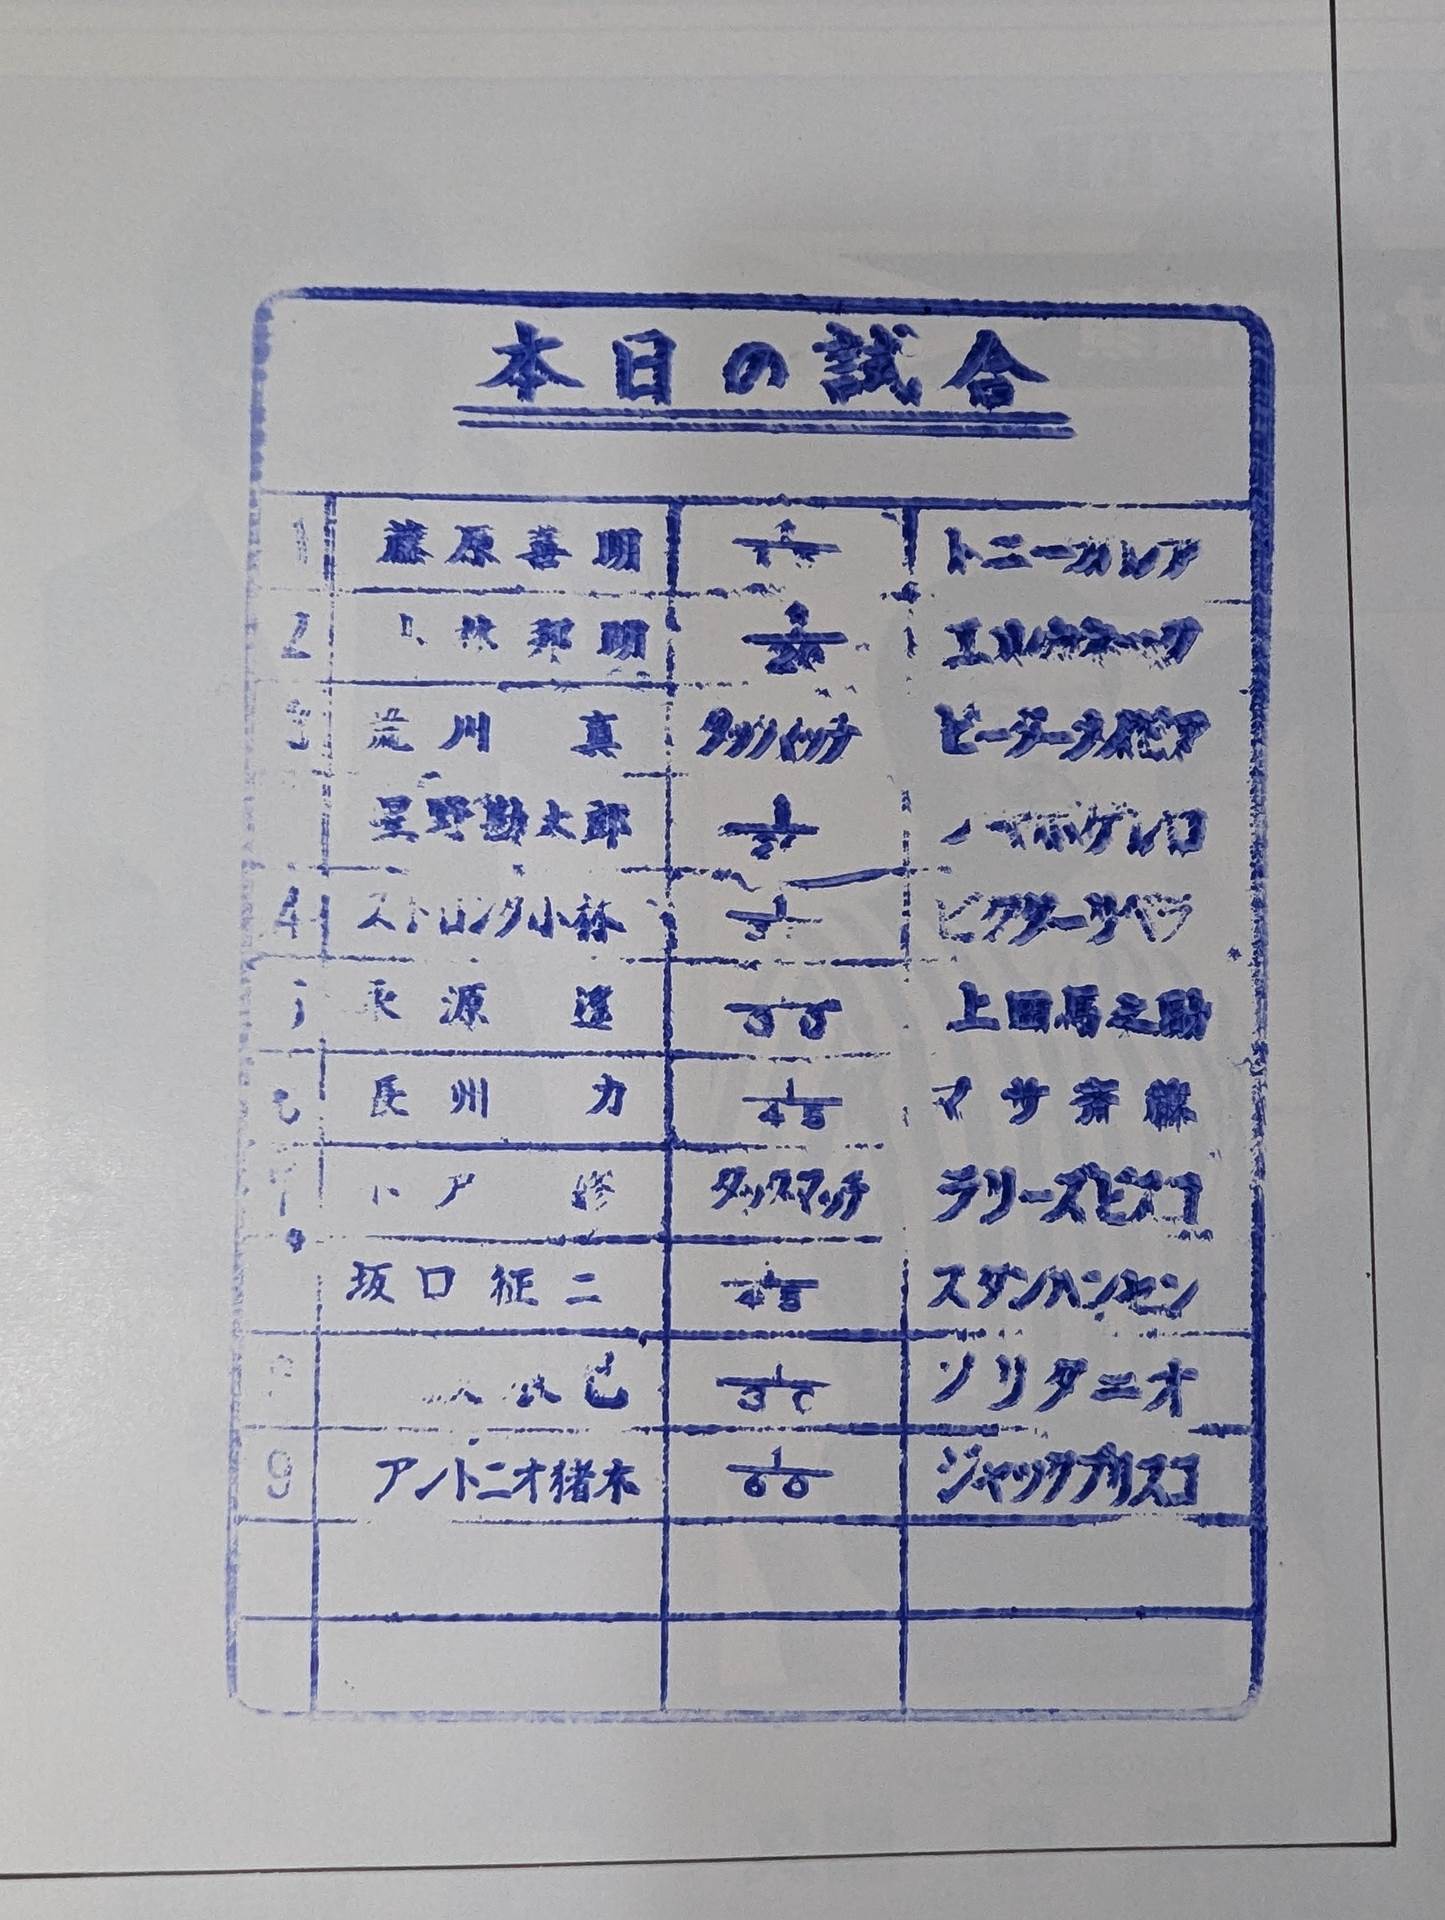 本日の試合
1 藤原善明 トニーガレア
2 小林邦明 1/20
3 荒川真 タッグマッチ ピーターメイビア
星野勘太郎
4 ストロング小林 ビクターリベラ
永源遙 1/30 上田馬之助
長州力 1/45 マサ斎藤
木戸修 タッグマッチ ラリーズビスコ
坂口征二 1/45 スタンハンセン
8 辰巳 1/30 ソリタニオ
9 アントニオ猪木 1/60 ジャックブリスコ